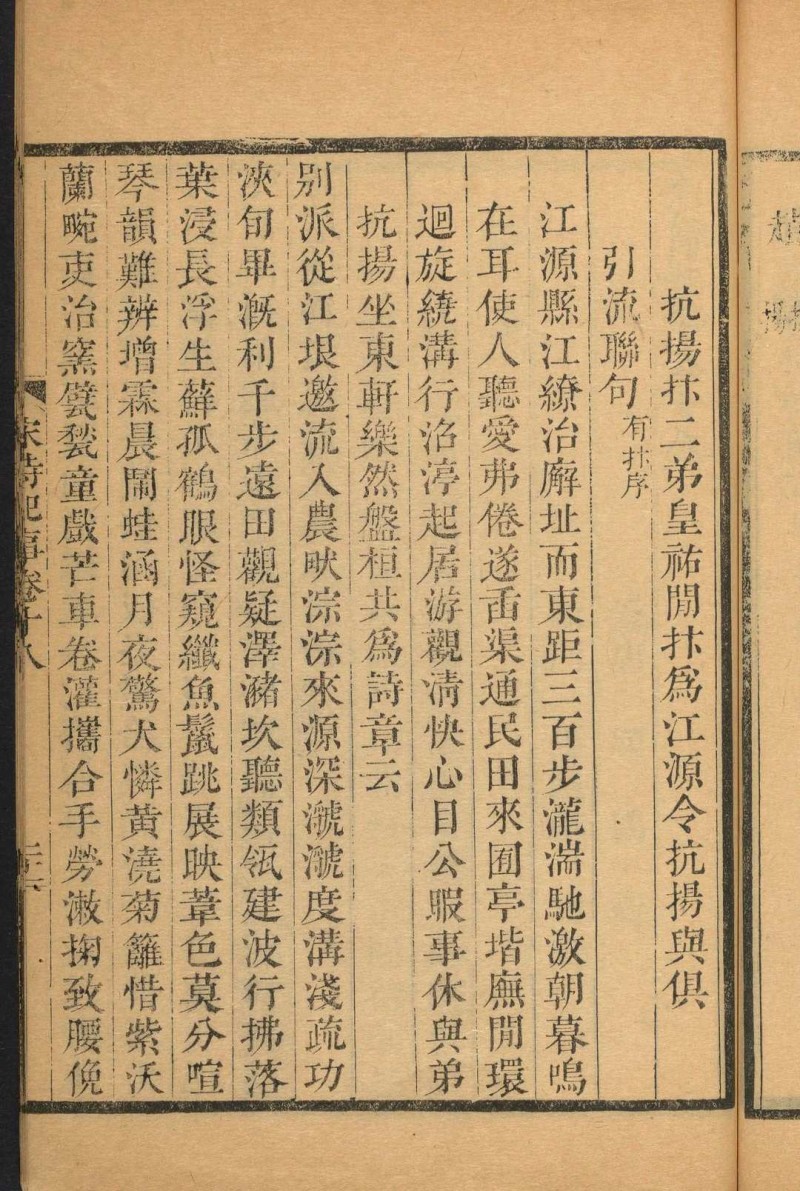 抗揚抃二弟皇祐閒抃爲江源令抗揚與俱
引流聯句有抃序
江源縣江繚治廨址而東距三百步瀧湍馳激朝暮鳴
在耳使人聽愛弗倦遂臿渠通民田來囿亭堦廡閒環
迴旋繞溝行沿渟起居游觀清快心目公暇事休與弟
抗揚坐東軒樂然盤桓共爲詩章云
別派從江垠邀流入農畎淙淙來源深㶁㶁度溝淺疏功
浹旬畢漑利千步遠田觀疑澤瀦坎聽類瓴建波行拂落
葉浸長浮生蘚孤鶴眼怪窺纖魚鬣跳展映葦色莫分喧
琴韻難辨增霖晨鬧蛙涵月夜驚犬憐黃澆菊籬惜紫沃
蘭畹吏治窯甓甃童戲芒車卷灌攜合手勞漱掬致腰俛
宋詩紀事卷十八